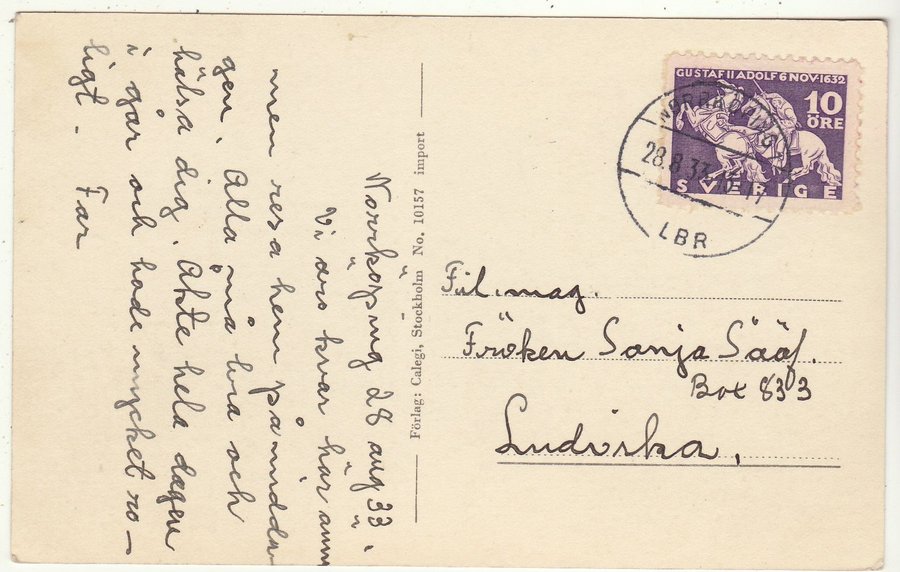 Norrköping 28 aug 33.
Vi äro kvar här ännu
men resa hem på midda-
gen. Alla må bra och
hälsa dig. Åkte hela dagen
i går och hade mycket ro-
ligt. Far
Förlag: Calegi, Stockholm No. 10157 import
GUSTAF II ADOLF 6 NOV. 1632
10
ÖRE
SVERIGE
NORRKÖPING
28.8.33
LBR
Fil. mag.
Fröken Sonja Sääf.
Box 833
Ludvika.